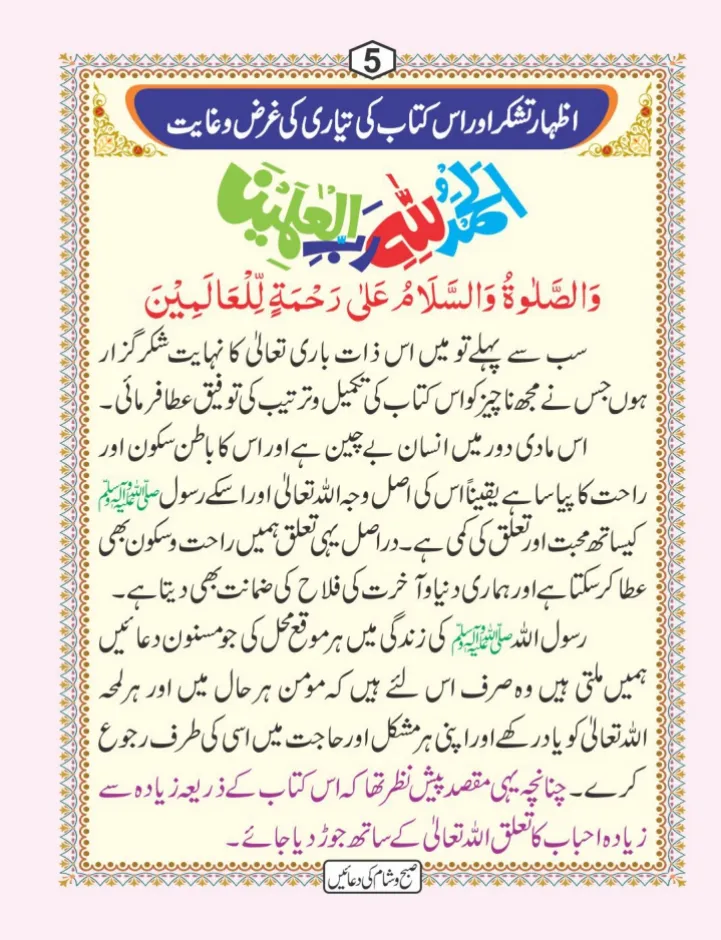 5
اظہار تشکر اور اس کتاب کی تیاری کی غرض و غایت
الحمد لله رب العلمين
وَالصَّلٰوةُ وَالسَّلَامُ عَلٰى رَحْمَةٍ لِّلْعَالَمِيْنَ
سب سے پہلے تو میں اس ذات باری تعالیٰ کا نہایت شکر گزار
ہوں جس نے مجھ ناچیز کو اس کتاب کی تکمیل و ترتیب کی توفیق عطا فرمائی۔
اس مادی دور میں انسان بے چین ہے اور اس کا باطن سکون اور
راحت کا پیاسا ہے یقیناً اس کی اصل وجہ اللہ تعالیٰ اور اسکے رسول صلی اللہ علیہ وآلہ وسلم
کیساتھ محبت اور تعلق کی کمی ہے۔ دراصل یہی تعلق ہمیں راحت و سکون بھی
عطا کر سکتا ہے اور ہماری دنیا و آخرت کی فلاح کی ضمانت بھی دیتا ہے۔
رسول اللہ صلی اللہ علیہ وآلہ وسلم کی زندگی میں ہر موقع محل کی جو مسنون دعائیں
ہمیں ملتی ہیں وہ صرف اس لئے ہیں کہ مومن ہر حال میں اور ہر لمحہ
اللہ تعالیٰ کو یاد رکھے اور اپنی ہر مشکل اور حاجت میں اسی کی طرف رجوع
کرے۔ چنانچہ یہی مقصد پیش نظر تھا کہ اس کتاب کے ذریعہ زیادہ سے
زیادہ احباب کا تعلق اللہ تعالیٰ کے ساتھ جوڑ دیا جائے۔
صبح و شام کی دعائیں